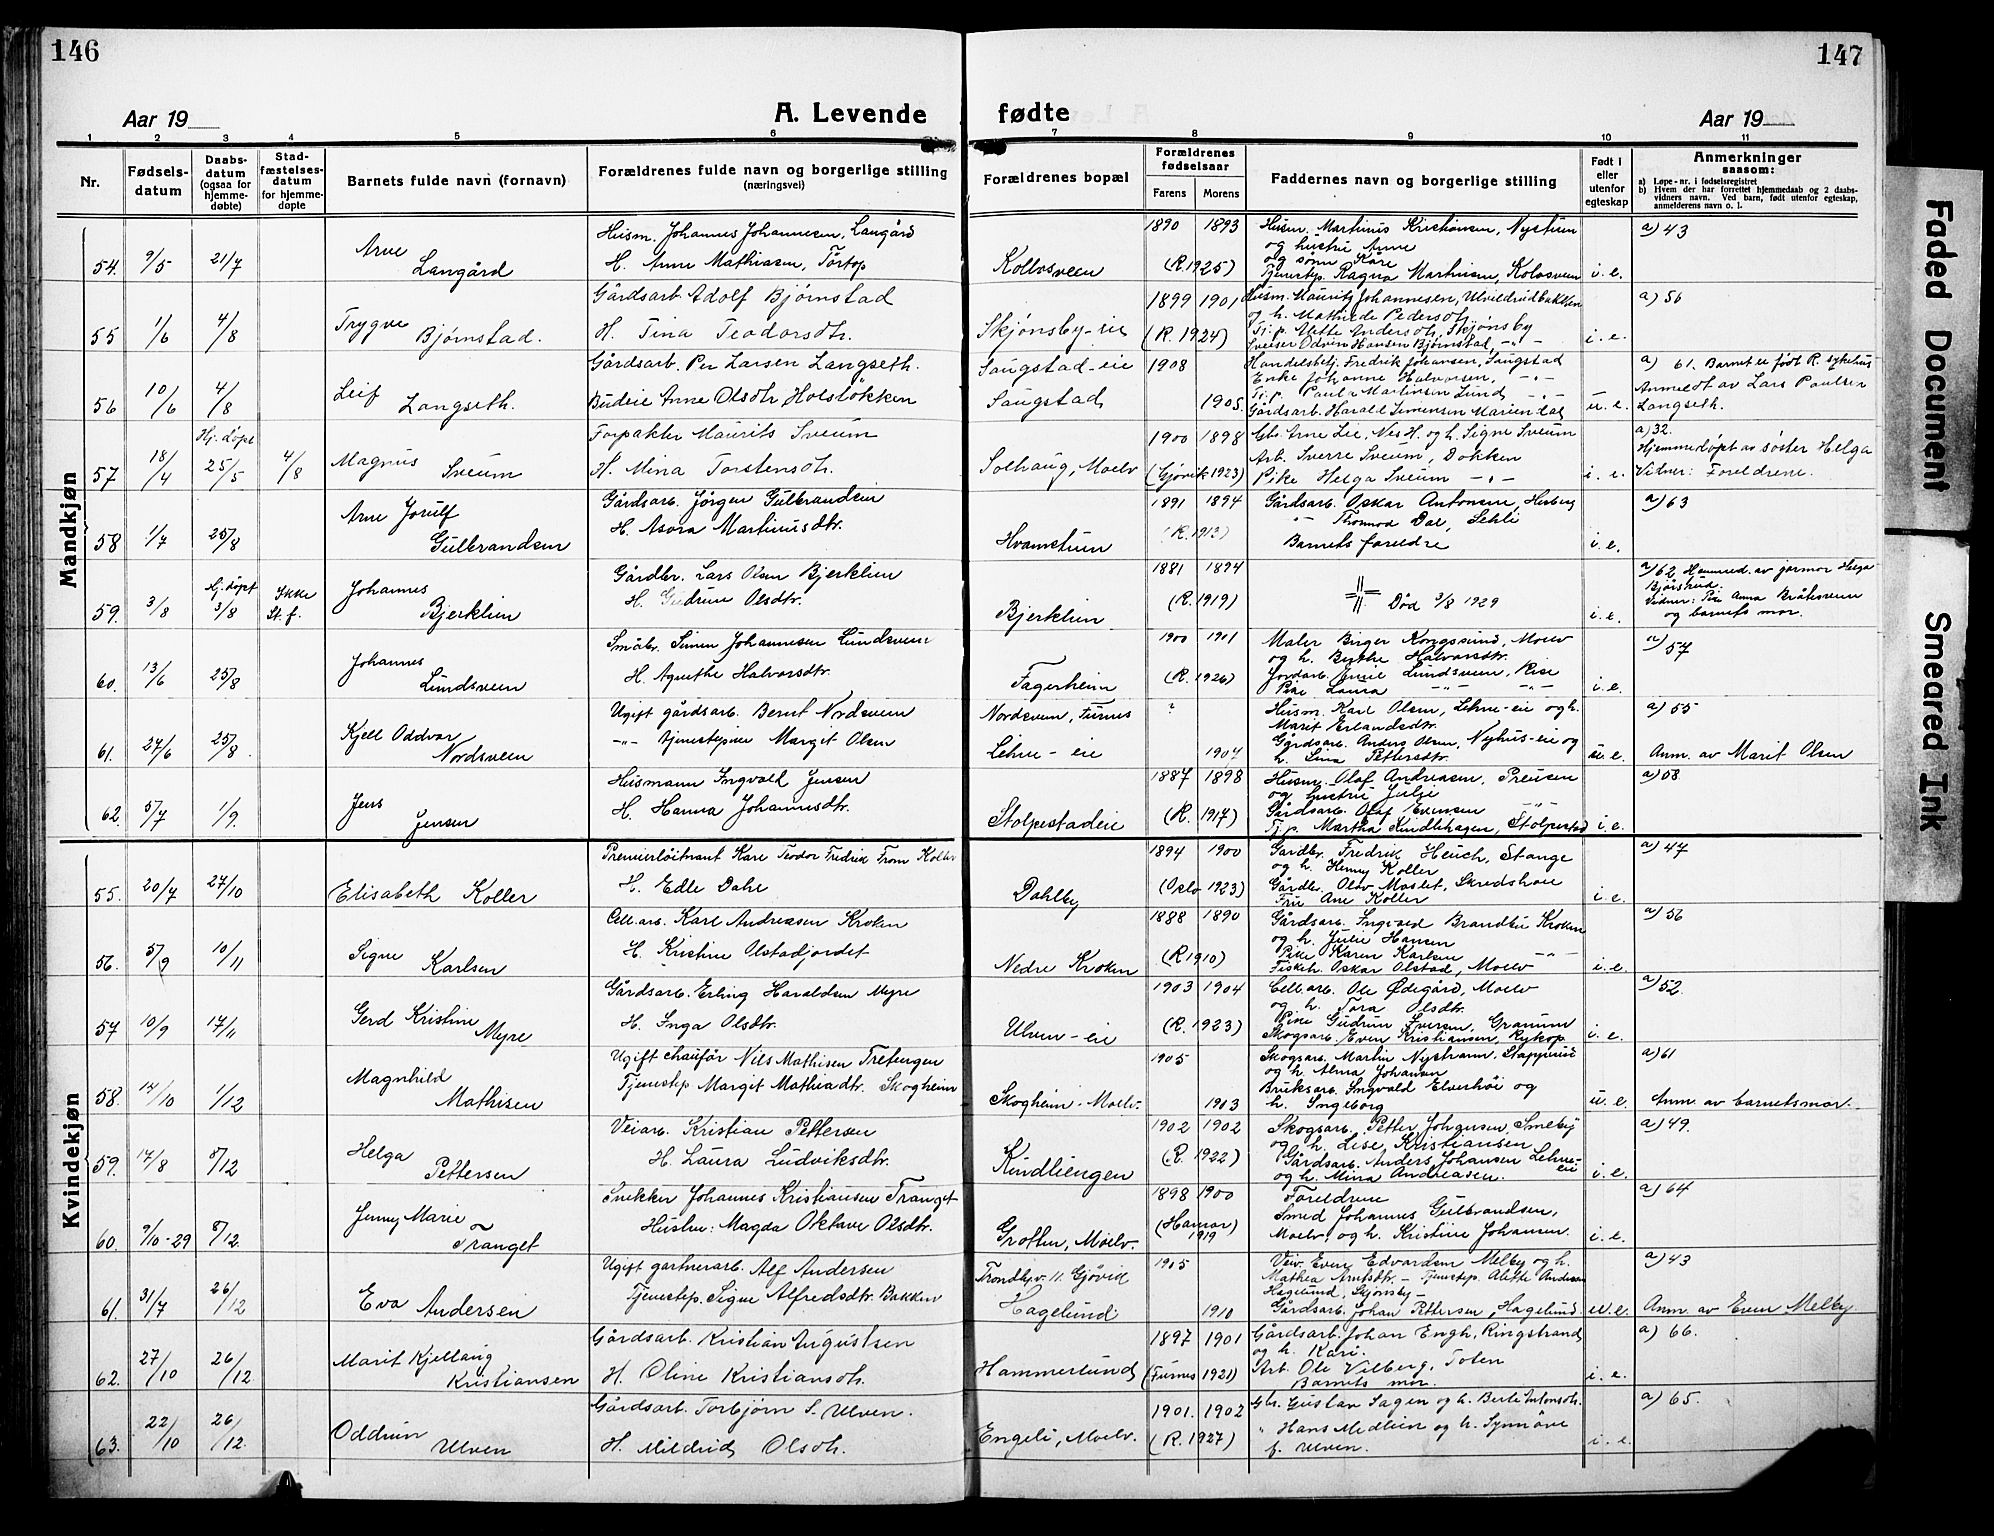 146
147
Aar 19
A. Levende
fødte
Aar 19
1 2 3 4 5 6 7 8 9 10 11
Nr.
Fødsels-
datum
Daabs-
datum
(ogsaa for
hjemme-
døbte)
Stad-
fæstelses-
datum
for hjemme-
døpte
Barnets fulde navn (fornavn)
Forældrenes fulde navn og borgerlige stilling
(næringsvei)
Forældrenes bopæl
Forældrenes
fødselsaar
Farens Morens
Faddernes navn og borgerlige stilling
Født i
eller
utenfor
egteskap
Anmerkninger
saasom:
a) Løpe-nr. i fødselsregistret
b) Hvem der har forrettet hjemmedaab og 2 daabs-
vidners navn. Ved barn, født utenfor egteskap,
anmelderens navn o. l.
Mandkjøn
Husm. Johannes Johannesen, Langård 1890 1893 Husm. Martinus Kristiansen, Nystuen a) 43
Arne og hustru Anne
54. 9/5 21/7 Langård H. Anne Mathiasen, Tørtop Kolbsveen (R. 1925) og sønn Kåre
Tjenestep. Ragna Martinsen, Kolosveen i. e.
Gårdsarb. Adolf Bjørnstad 1899 1901 Husm. Mauritz Johannesen, Ulvildrudbakken a) 56
Trygve og h. Mathilde Pedersdtr.
55 1/6 4/8 Bjørnstad. H. Tina Teodorsdtr. Skjønsby-eie (R. 1924) Tj.p. Alette Andersdtr. Skjønsby
Sveiser Odvin Hansen Bjørnstad, -"- i. e.
Gårdsarb. Per Larsen Langseth. Saugstad-eie 1908 Handelsbetj. Fredrik Johansen, Saugstad a) 61. Barnet er født R. sykehus
Leif Enke Johanne Halvorsen, -"- Anmeldt av Lars Paulsen
56 10/6 4/8 Langseth. Budeie Anne Olsdtr Holsløkken Saugstad 1905. Tj.p. Paul Martinsen Lund -"- Langseth.
Gårdsarb. Harald Simensen Mariendal u. e.
Hj. døpt Forpakter Maurits Sveum 1900 1898 Gbr. Arne Lie, Nes H. og h. Signe Sveum a) 32.
Magnus Arb. Sverre Sveum, Dokken Hjemmedøpt av søster Helga
57 18/4 25/5 4/8 Sveum H. Mina Torstensdtr. Solhaug, Moelv (Gjøvik 1923) Pike Helga Sveum -"- i. e. Vitner: Foreldrene.
Arne Jorulf Gårdsarb. Jørgen Gulbrandsen 1891 1894 Gårdsarb. Oskar Antonsen, Herberg a) 63
-"- Thormod Dal, Lehli
58 1/7 25/8 Gulbrandsen H. Asora Martinusdtr. Hvamstuen (R. 1913) Barnets foreldre i. e.
Hj. døpt Ikke Johannes Gårdbr. Lars Olsen Bjerklien 1881 1894 a) 62 Hjemmed. av jormor Helga
Bjørsrud.
59. 3/8 3/8 St. f. Bjerklien H. Gudrun Olsdtr. Bjerklien (R. 1919) Død 3/8 1929 i. e. Vidner: Pike Anna Bråtsveen
og barnets mor.
Johannes Småbr. Simen Johannesen Lundsveen 1900 1901 Maler Birger Kongssund, Moelv a) 57
og h. Berthe Halvorsdtr.
60. 13/6 25/8 Lundsveen H. Agnethe Halvorsdtr. Fagerheim (R. 1926) Jordarb. Lundsveen, Rise
Pike Laura -"- -"- i. e.
Kjell Oddvar Ugift gårdsarb. Bernt Nordsveen Nordsveen, Furnes ? Husm. Karl Olsen, Lehne-eie og h. a) 55
Marit Erlandsdtr.
61. 27/6 25/8 Nordsveen -"- tjenestepike Margit Olsen Lehne-eie 1904 Gårdsarb. Anders Olsen, Nyhus-eie og
h. Lina Pettersdtr. u. e. Anm. av Marit Olsen
Jens Husmann Ingvald Jensen 1887 1898 Husm. Olaf Andreasen, Preusen a) 58
og hustru Julie
62. 5/7 1/9. Jensen H. Hanna Johannesdtr. Stolpestadeie (R. 1917) Gårdsarb. Olaf Evensen -"-
Tj.p. Martha Kindlihagen, Stolpestad i. e.
Kvindekjøn
Premierløitnant Kare Teodor Fredrik From Koller 1894 1900 Gårdbr. Fredrik Heuch, Stange a) 47
og h. Henny Koller
55. 20/7 27/10 Elisabeth Koller H. Edle Dahe Dahlby (Oslo 1923) Gårdb. Olav Moslet, Skredshou
Fru Ane Koller i. e.
Cell.arb. Karl Andreasen Kroken 1888 1890 Gårdsarb. Ingvald Brandlie Kroken a) 56
Signe og h. Julie Hansen
56. 5/9 10/11 Karlsen H. Kristine Olstadjordet Nedre Kroken (R 1910) Pike Karen Karlsen -"-
Fiskeh. Oskar Olstad, Moelv i. e.
Gårdsarb. Erling Haraldsen Myre 1903 1904 Cell.arb. Ole Ødegård, Moelv a) 52.
Gerd Kristine og h. Tora Olsdtr.
57 10/9 17/11 Myre H. Inga Olsdtr. Ulven-eie (R. 1923) Pike Gudrun Iversen, Granum
Skogsarb. Even Kristiansen, Rykop i. e.
Ugift chaufør Nils Mathisen Tretengen 1905 Skogsarb. Martin Nystrøm, a) 61
Magnhild og h. Alma Johansen
58. 14/10 1/12 Mathisen Tjenestep Margit Mathiadtr. Skogheim Skogheim-Moelv. 1903 Bruksarb. Ingvald Elverhøi og
h. Ingeborg u. e. Anm. av barnets mor.
Veiarb. Kristian Pettersen 1902 1902 Skogsarb. Petter Johansen, Smeby a) 49.
Helga og h. Lise Kristiansen
59. 17/8 8/12 Pettersen H. Laura Ludviksdtr. Kindliengen (R. 1922) Gårdsarb. Anders Johansen Lehne-
eie
og h. Mina Andreasen. i. e.
Snekker Johannes Kristiansen Tranget 1898 1900 Foreldrene a) 64
Jenny Marie Smed Johannes Gulbrandsen,
60. 9/10-29 8/12. Tranget Hustru: Magda Oktave Olsdtr. Grotten, Moelv. (Hamar) 1919 Moelv, og h. Kristine Johansen. i. e.
Ugift gartnerarb. Alf Andersen Trondhjv. 11. Gjøvik 1905 Veiv. Even Edvardsen Melby og h. a) 43
Mathea Arntsdtr. - Tjenestep. Alette Andersen
61. 31/7 26/12 Eva Andersen Tjenestep. Signe Alfredsdtr. Bakken Hagelund 1910 Hagelund, Skjønsby-
Gårdsarb. Johan Pettersen, Hagelund. u. e. Anm. av Even Melby
Gårdsarb. Kristian Augustsen 1897 1901 Gårdsarb. Johan Engh, Ringstrand a) 66.
Marit Kjellaug og h. Kari.
62. 27/10 26/12. Kristiansen H. Oline Kristiansdtr. Hammerlund (Furnes 1921) Arb. Ole Vilberg, Toten
Barnets mor. i. e.
Gårdsarb. Torbjørn S. Ulven. 1901. 1902 Gbr. Gustav Sagen og h. Berte Antonsdtr. a) 65.
Oddrun " Hans Medlien og h. Synnøve
63. 22/10 26/12. Ulven H. Mildrid Olsdtr. Engeli, Moelv. (R. 1927) f. Ulven. i. e.
Faded Document
Smeared Ink